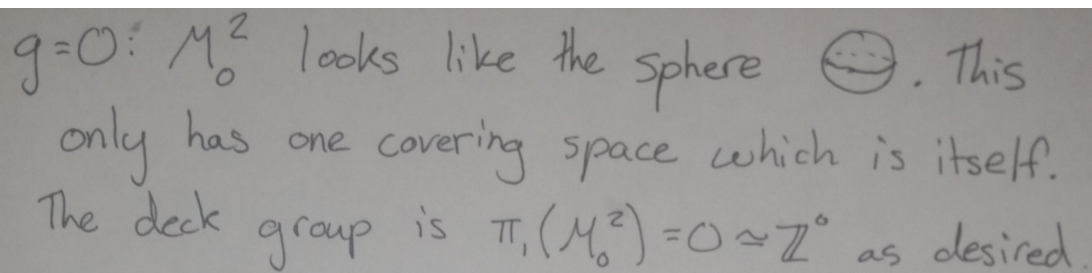 g=0: M₀² looks like the sphere . This
only has one covering space which is itself.
The deck group is π₁(M₀²)=0≃ℤ⁰ as desired